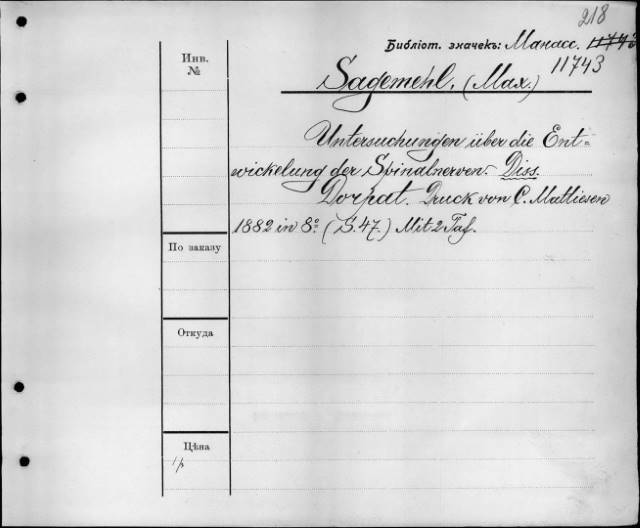 218
Библіот. значекъ: Манасс.
11743
Инв.
№
Sagemehl, (Max.)
Untersuchungen über die Ent-
wickelung der Spinalnerven. Diss.
Dorpat. Druck von C. Mattiesen
1882 in 8º (S. 47.) Mit 2 Taf.
По заказу
Откуда
Цѣна
1р